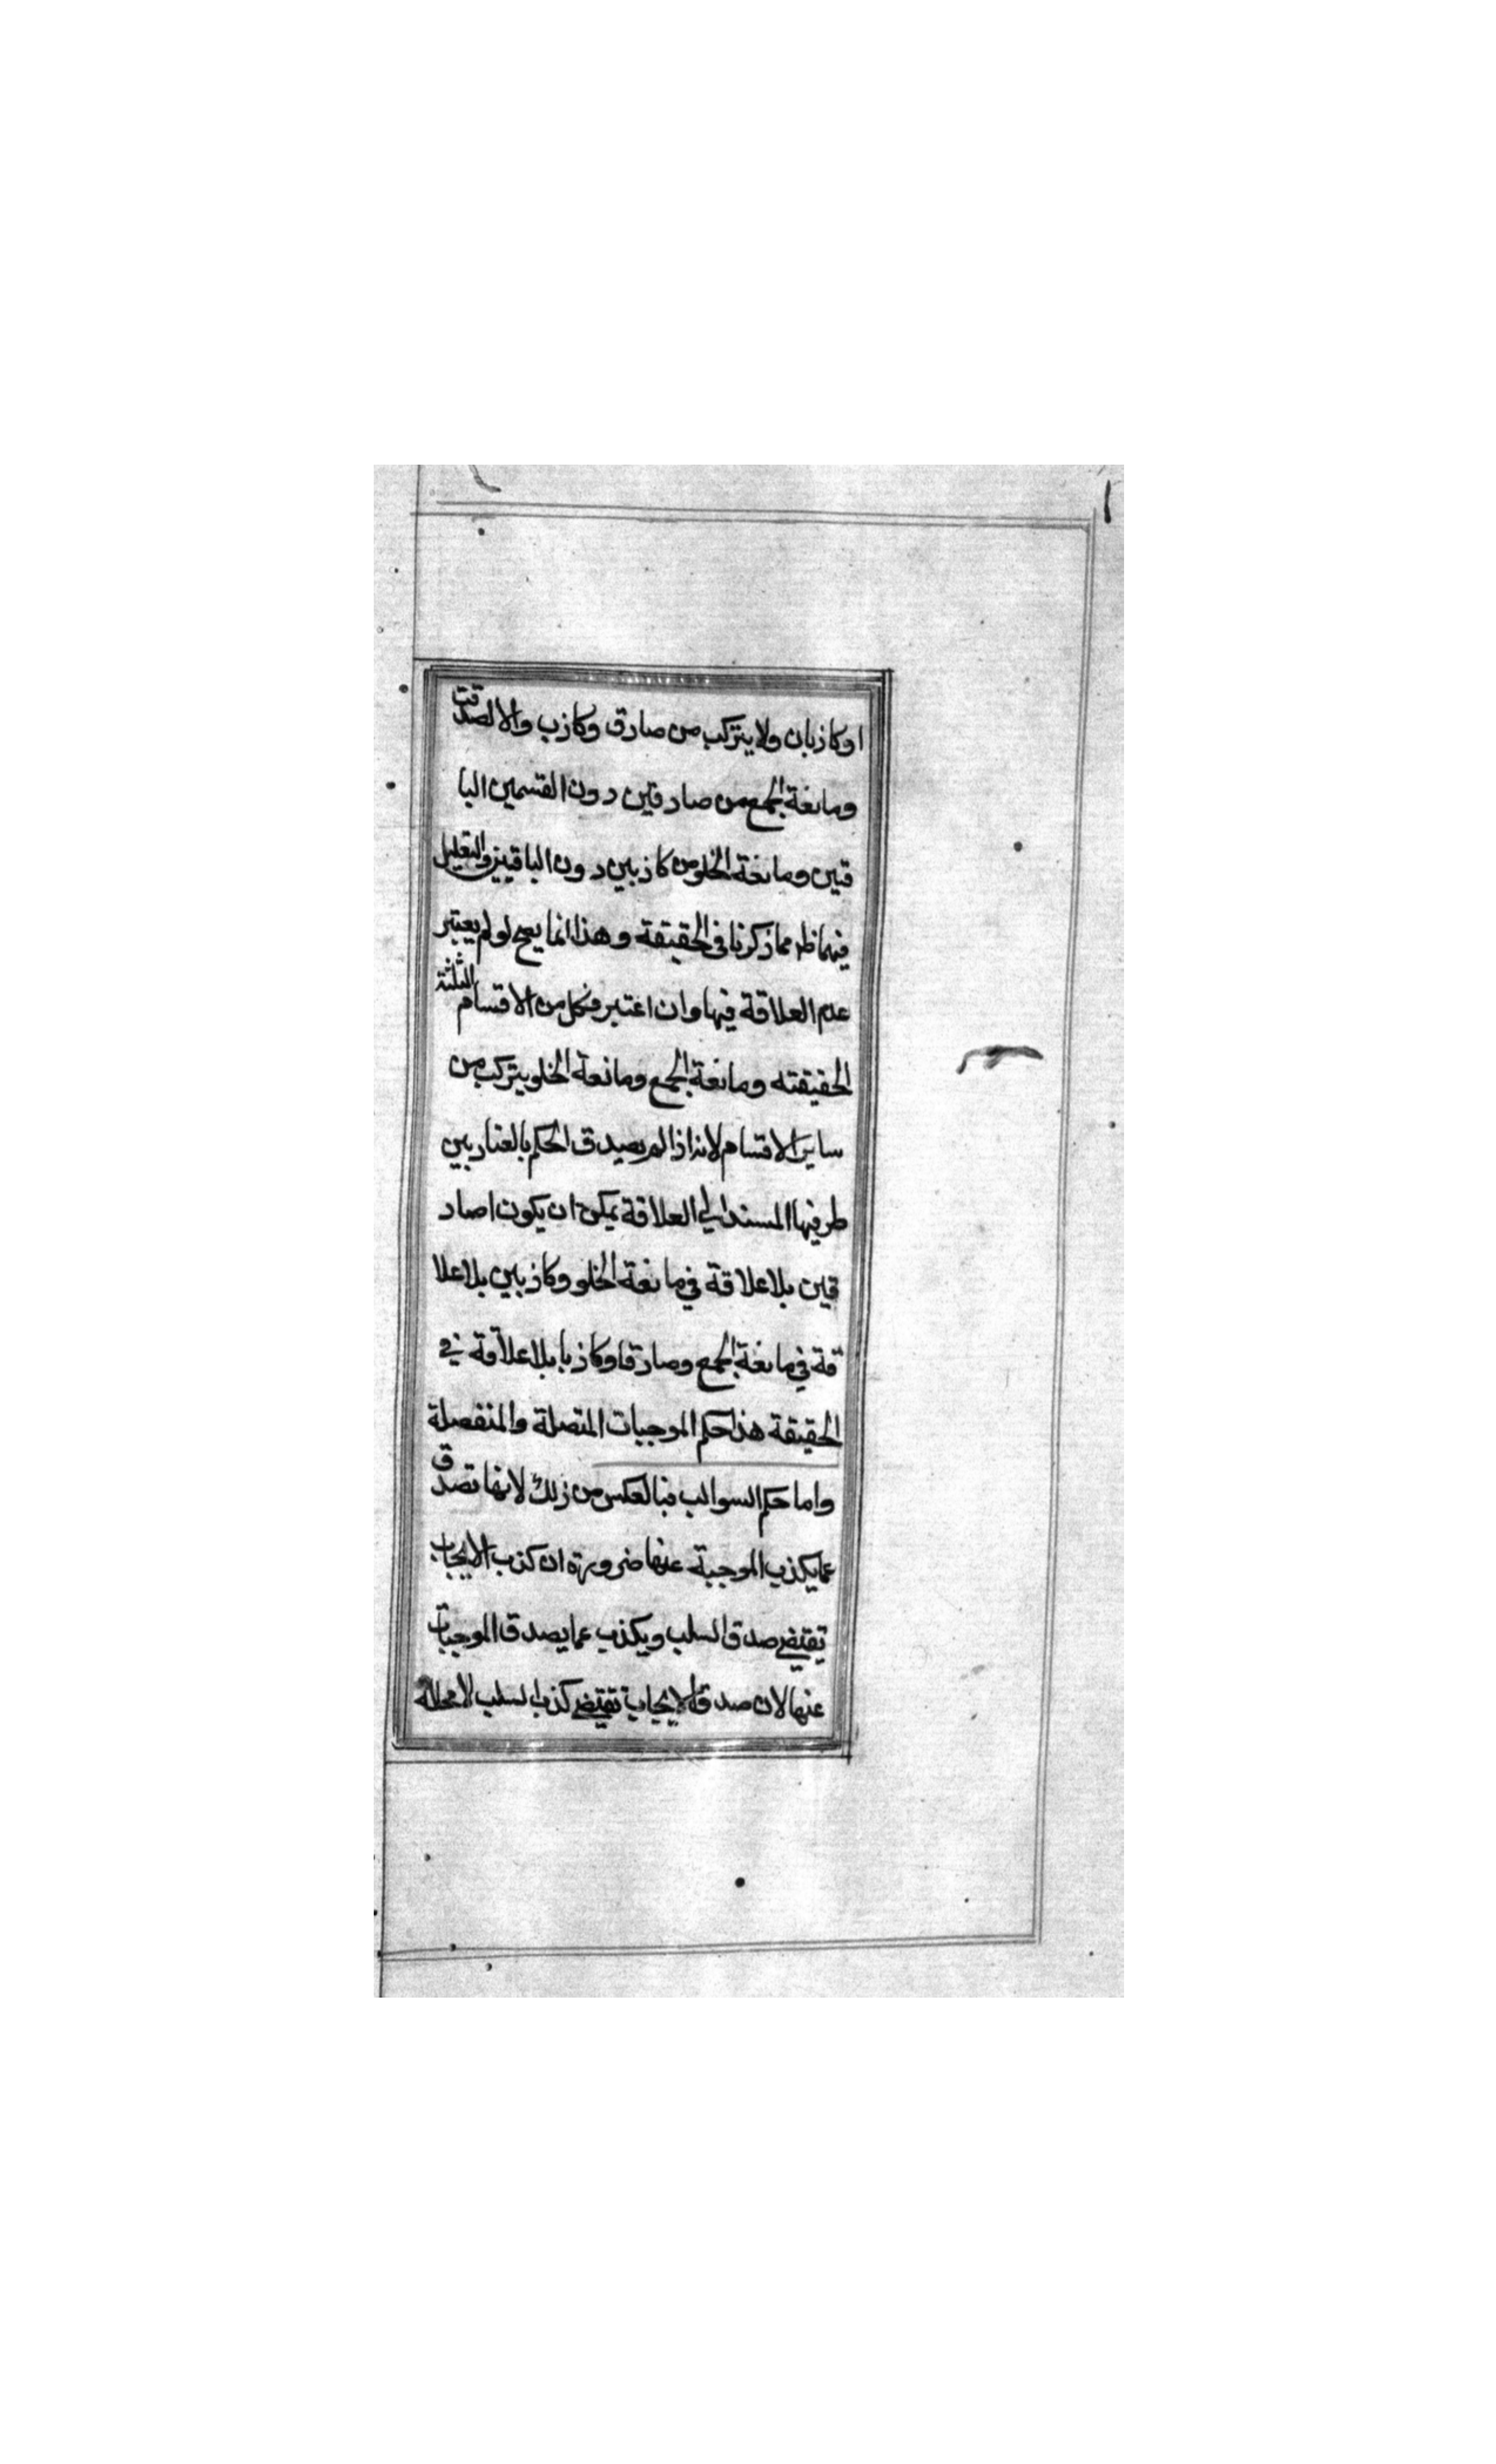 اوكاذبان ولا يتركب من صادق وكاذب والا لصدقت
ومانعة الجمع من صادقين دون القسمين البا
قيين ومانعة الخلو من كاذبين دون الباقيين والتعليل
فيهما ظ مما ذكرنا في الحقيقة وهذا انما يصح لو لم يعتبر
عدم العلاقة فيها وان اعتبر فكل من الاقسام الثلثة
الحقيقته ومانعة الجمع ومانعة الخلو يتركب من
ساير الاقسام لانه اذا لم يصدق الحكم بالعناد بين
طرفيها المسند الي العلاقة يمكن ان يكون اصاد
قين بلا علاقة في مانعة الخلو وكاذبين بلا علا
قة في مانعة الجمع وصادقا وكاذبا بلا علاقة في
الحقيقة هذا حكم الموجبات المتصلة والمنفصلة
واما حكم السوالب فبالعكس من ذلك لانها تصدق
عما يكذب الموجبة عنها ضرورة ان كذب الايجاب
تقتضي صدق السلب ويكذب عما يصدق الموجبات
عنها لان صدق الايجاب تقتضي كذب السلب لا محالة